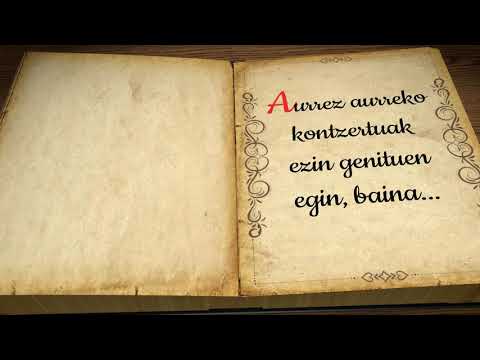 Aurrez aurreko
kontzertuak
ezin genituen
egin, baina...